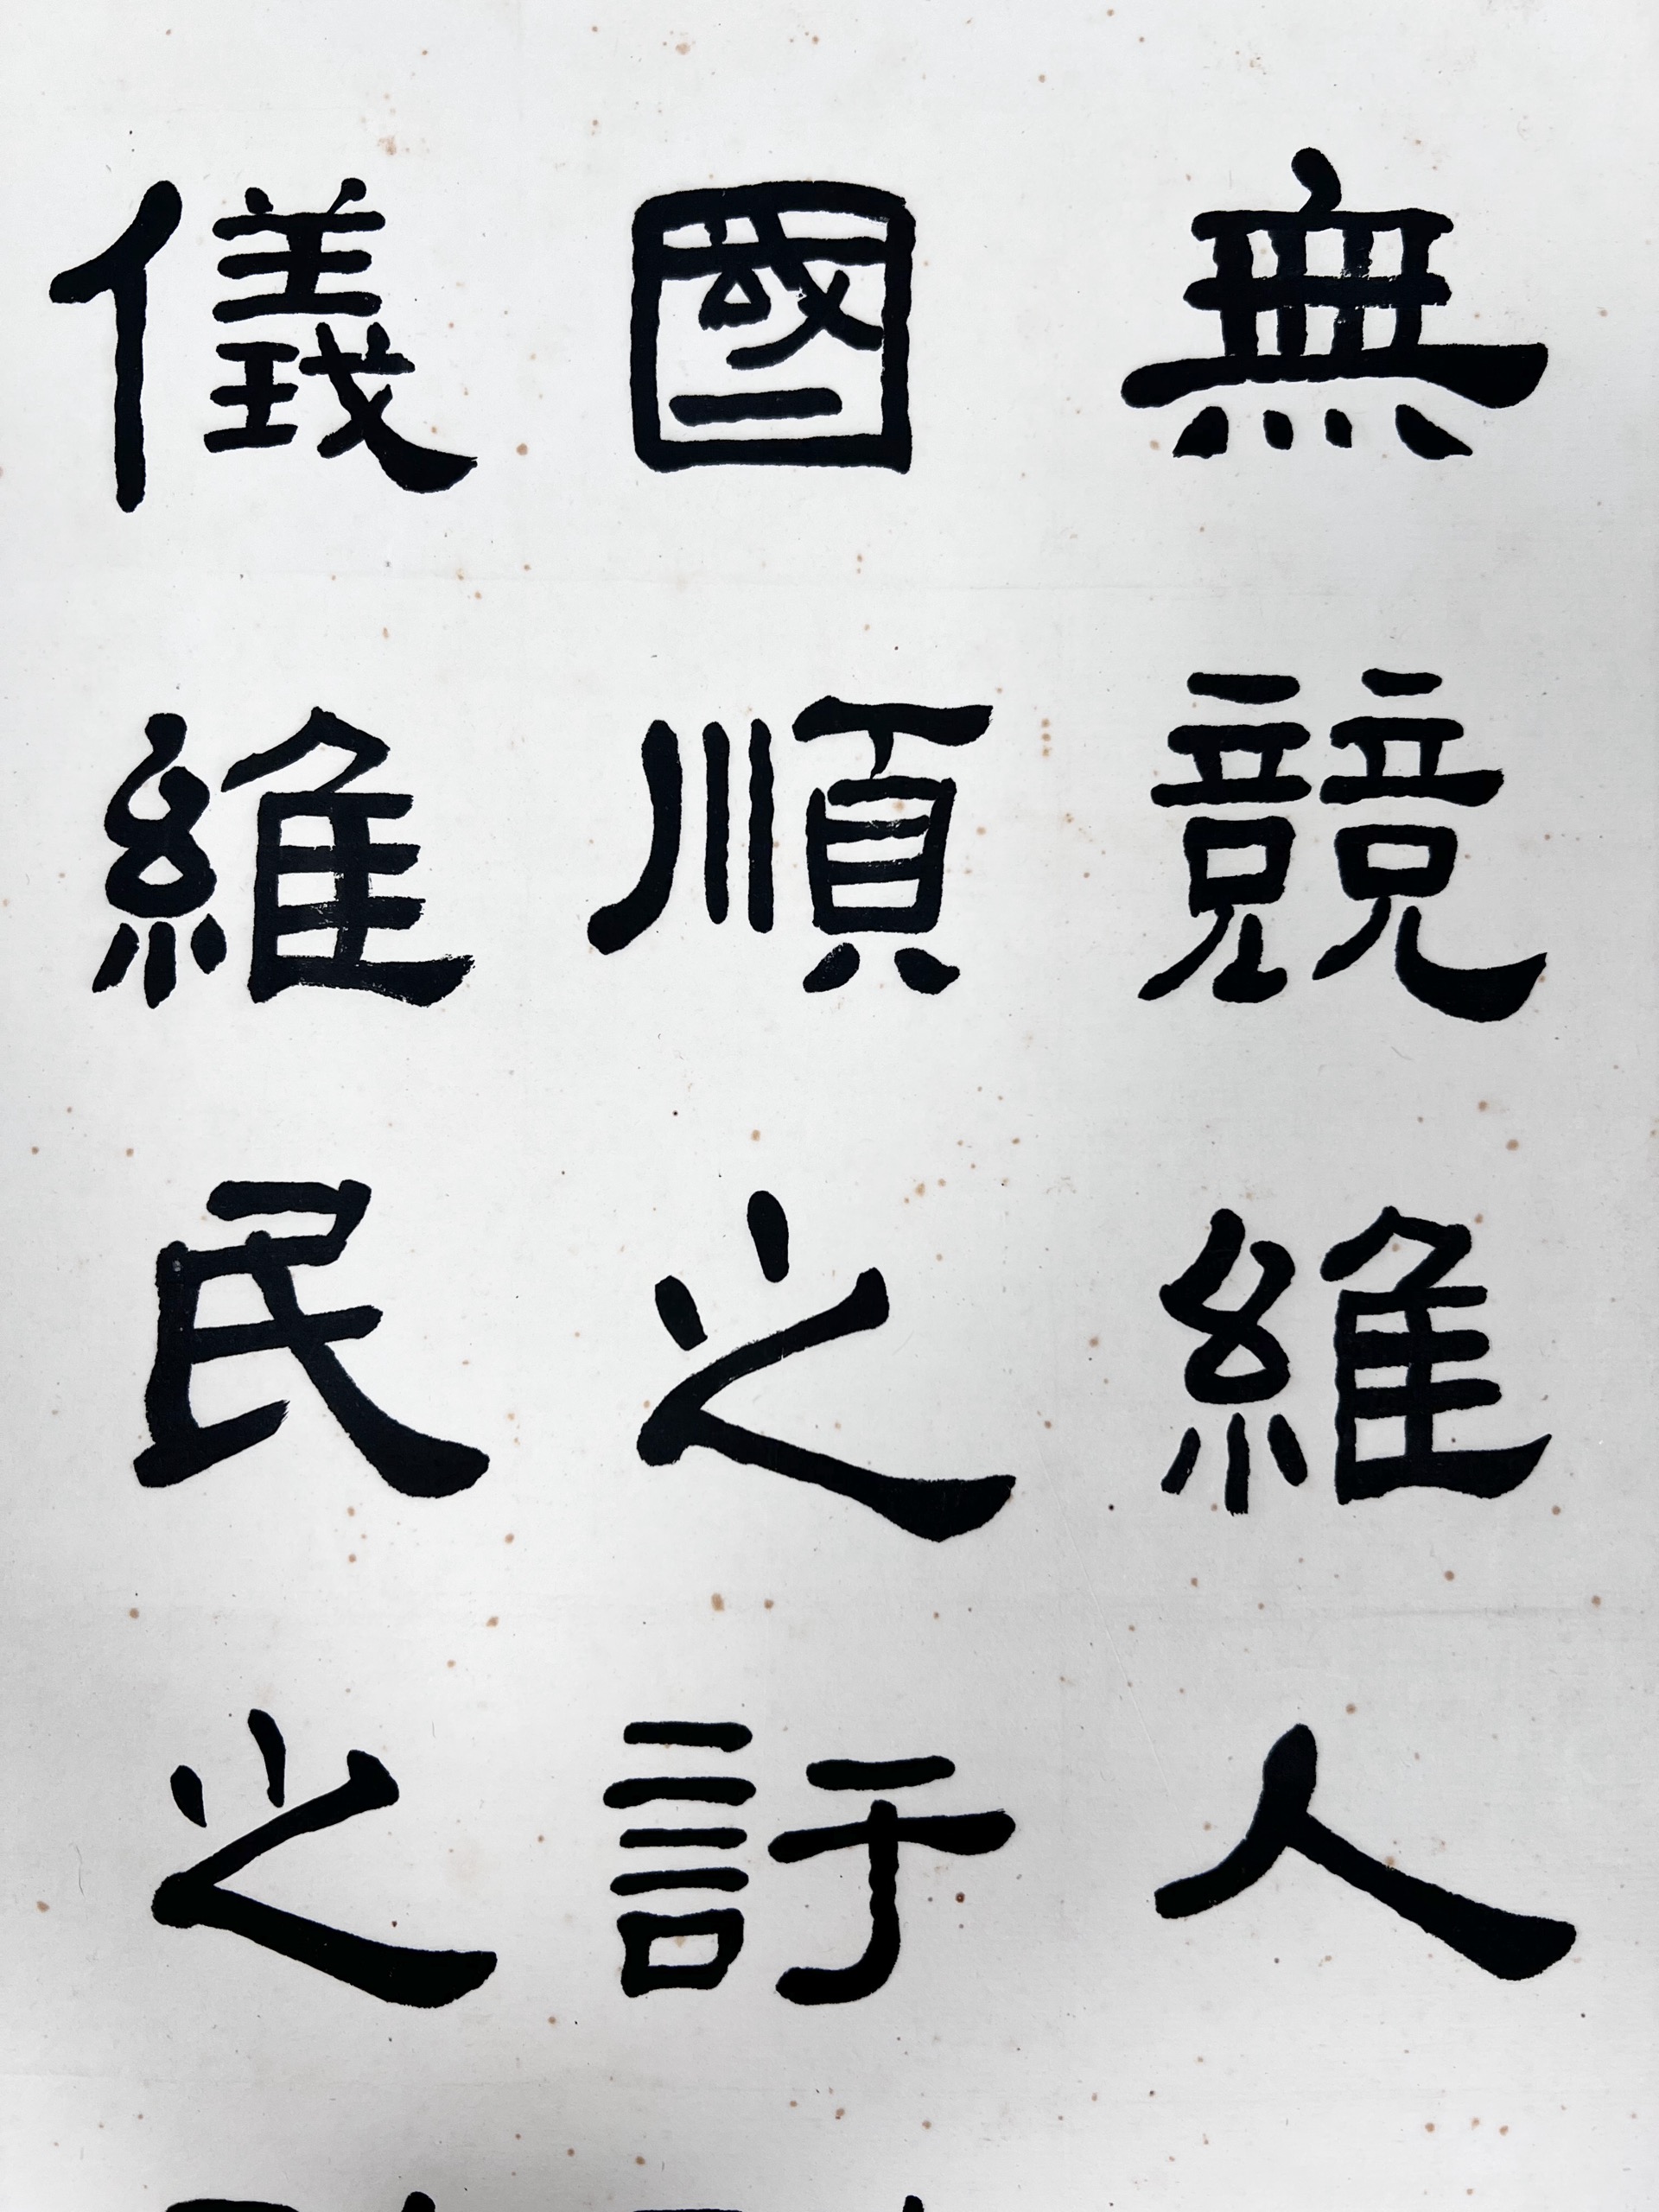 無競維人
國順之訏
儀維民之